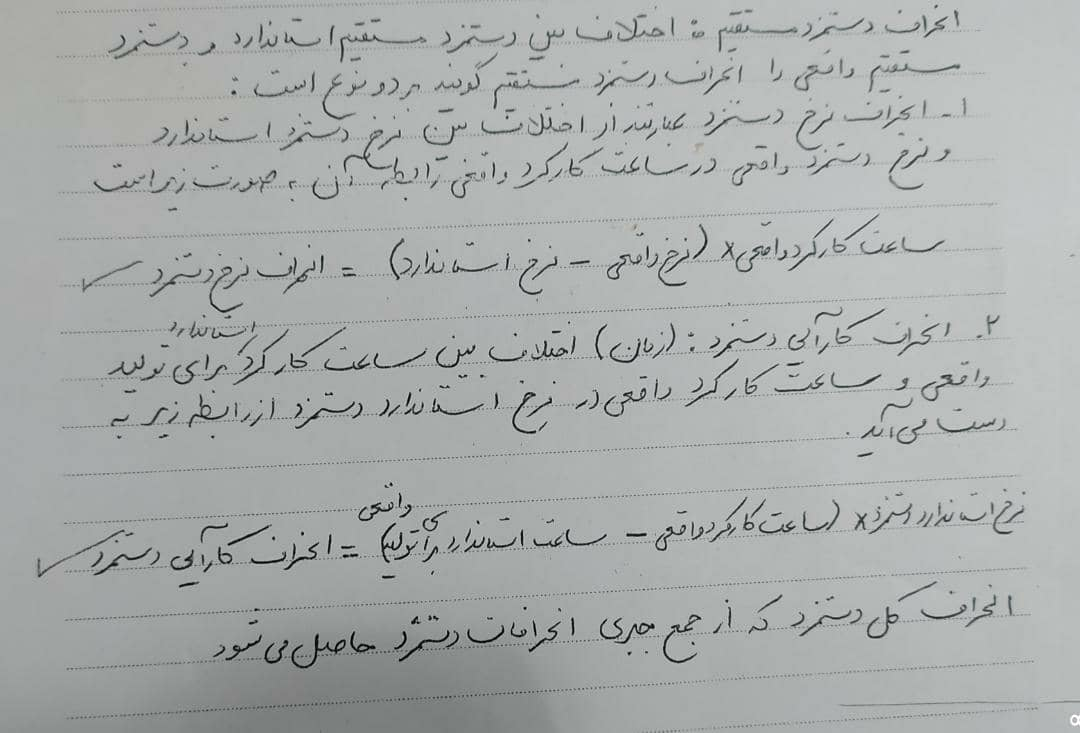 انحراف دستمزد مستقیم : اختلاف بین دستمزد مستقیم استاندارد و دستمزد
مستقیم واقعی را انحراف دستمزد مستقیم گویند بر دو نوع است :
۱- انحراف نرخ دستمزد عبارتند از اختلاف بین نرخ دستمزد استاندارد
و نرخ دستمزد واقعی در ساعت کارکرد واقعی رابطه آن به صورت زیر است
ساعت کارکرد واقعی × (نرخ واقعی - نرخ استاندارد) = انحراف نرخ دستمزد
۲. انحراف کارآیی دستمزد : (زمان) اختلاف بین ساعت کارکرد استاندارد برای تولید
واقعی و ساعت کارکرد واقعی در نرخ استاندارد دستمزد از رابطه زیر به
دست می‌آید .
نرخ استاندارد دستمزد × (ساعت کارکرد واقعی - ساعت استاندارد برای تولید واقعی) = انحراف کارآیی دستمزد
انحراف کل دستمزد که از جمع جبری انحرافات دستمزد حاصل می‌شود